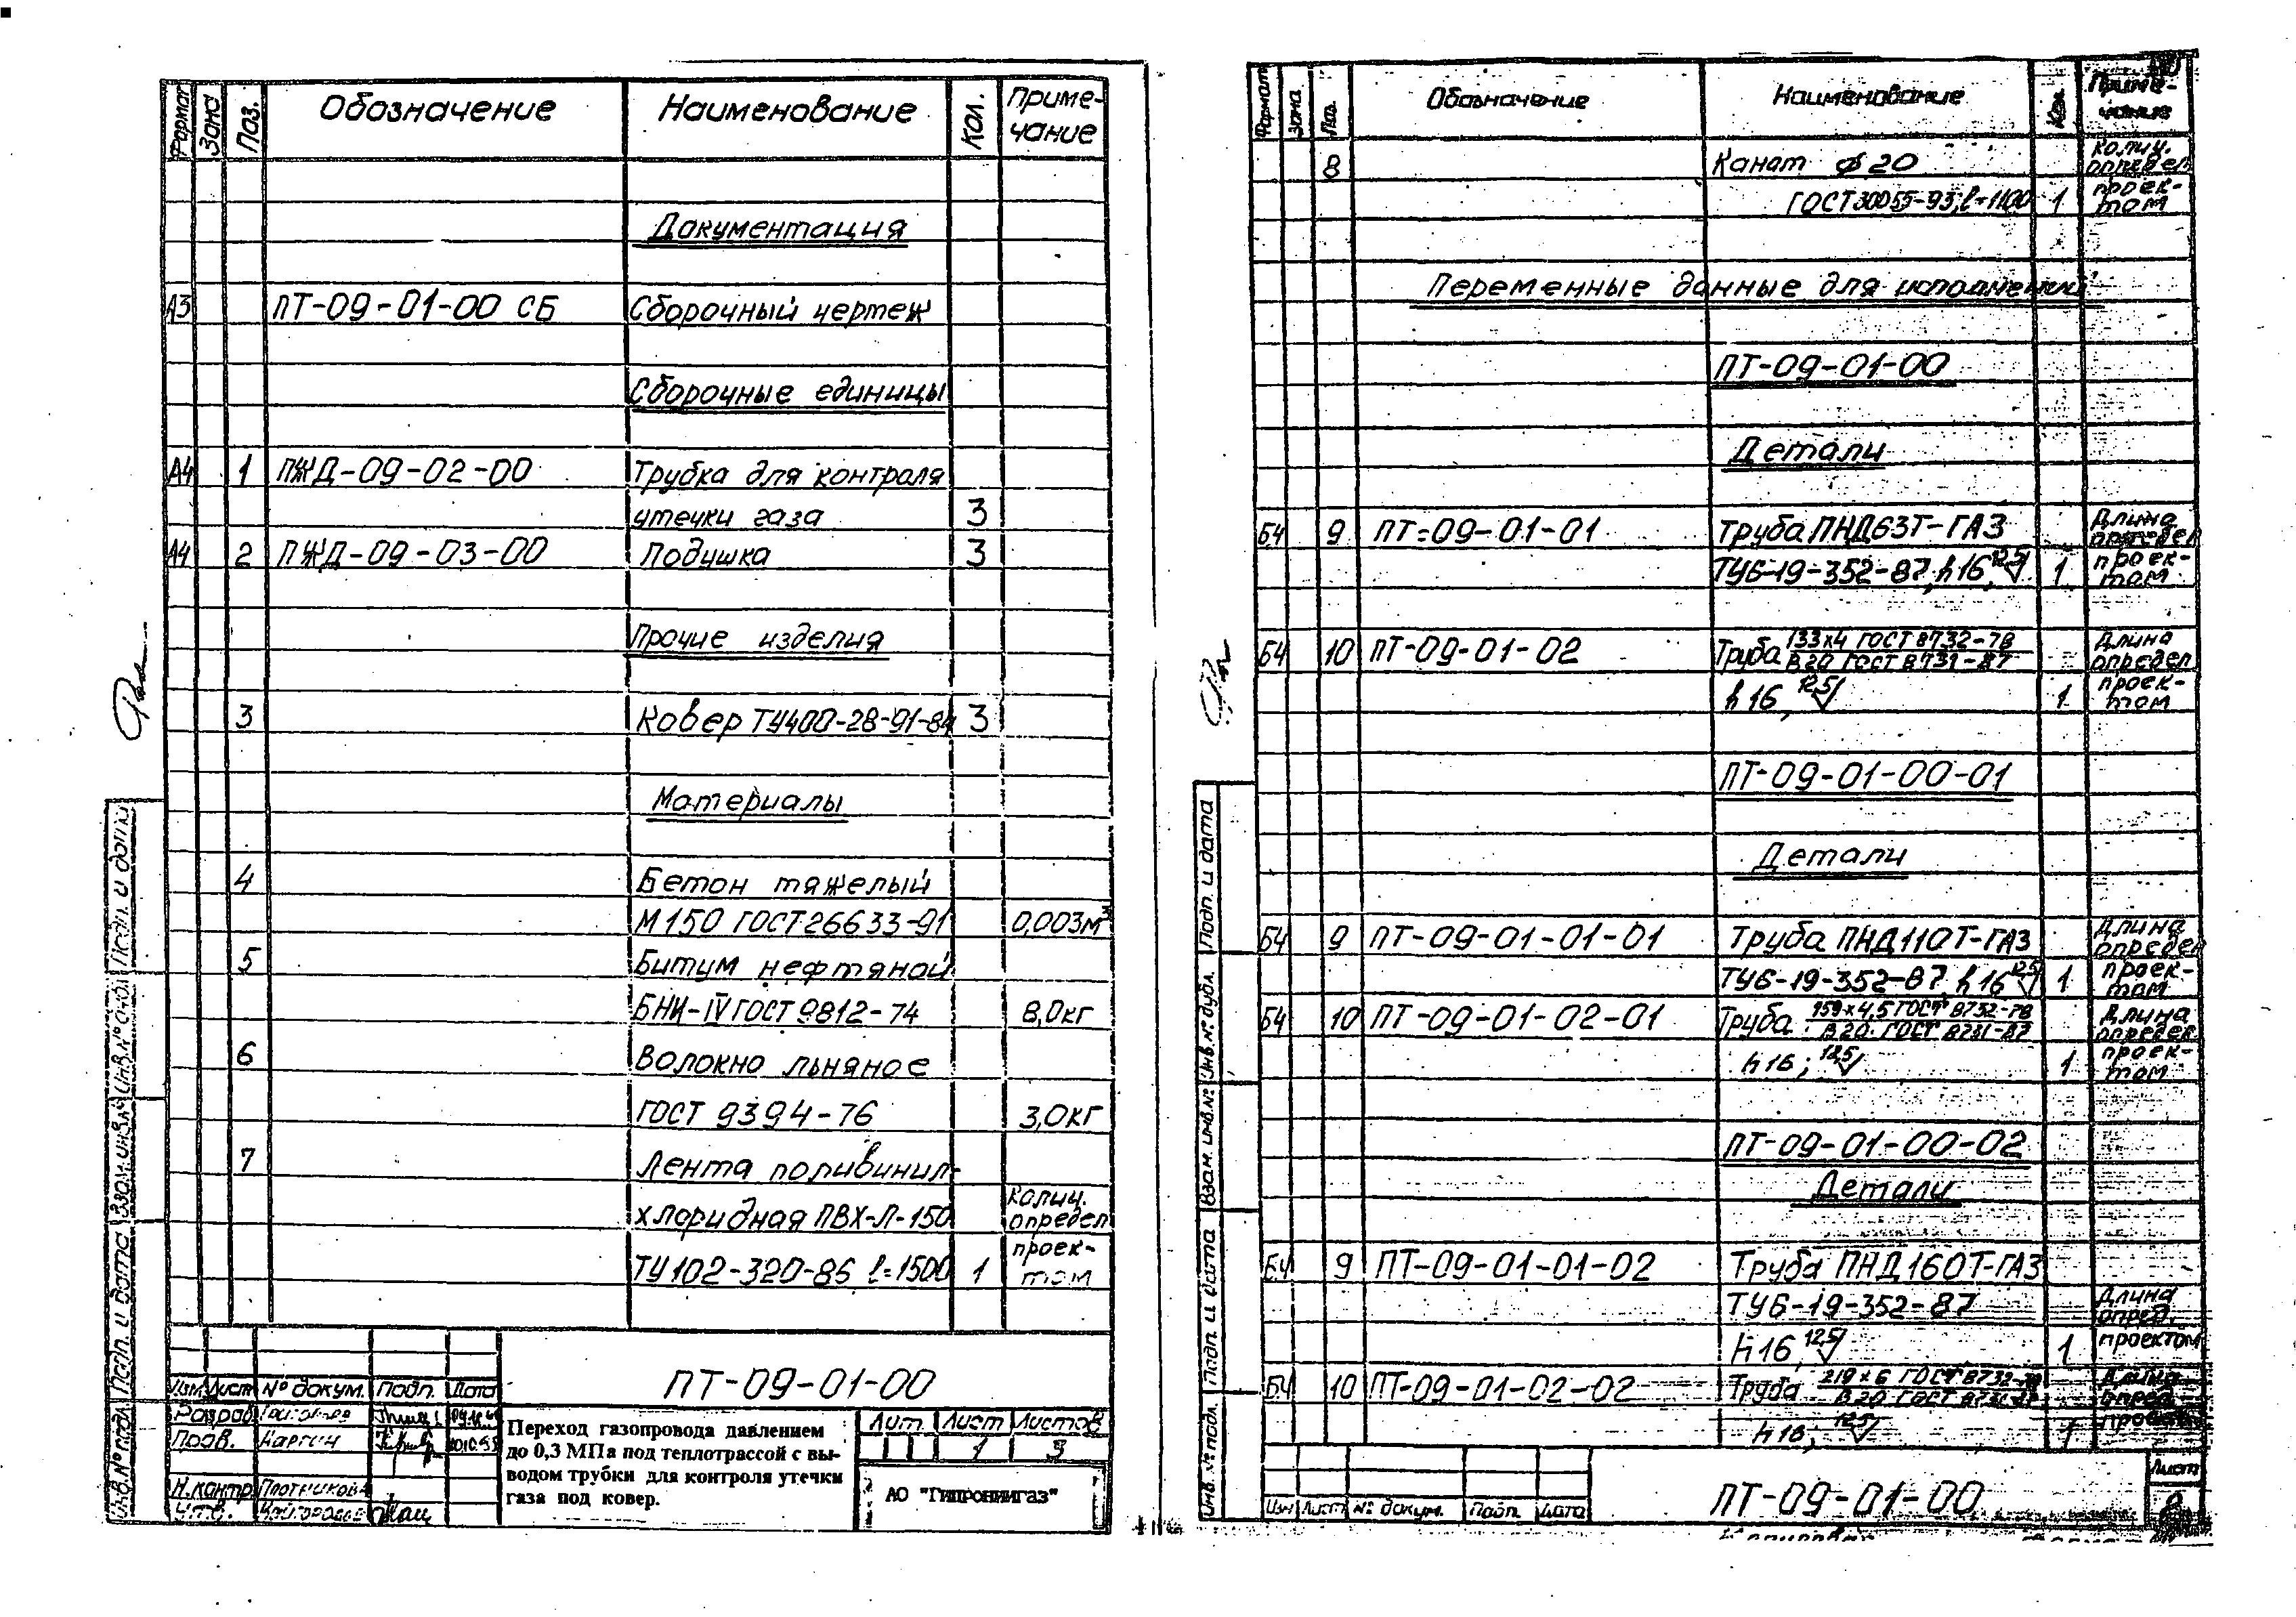 Формат Зона Поз. Обозначение Наименование Кол. Приме-
чание
Документация
А3 ПТ-09-01-00 СБ Сборочный чертеж
Сборочные единицы
А4 1 ПЖД-09-02-00 Трубка для контроля
утечки газа 3
А4 2 ПЖД-09-03-00 Подушка 3
Прочие изделия
3 Ковер ТУ400-28-91-84 3
Материалы
4 Бетон тяжелый
М150 ГОСТ26633-91 0,003м³
5 Битум нефтяной
БНИ-IV ГОСТ 9812-74 8,0кг
6 Волокно льняное
ГОСТ 9394-76 3,0кг
7 Лента поливинил-
хлоридная ПВХ-Л-150 Колич.
определ
ТУ102-320-86 ℓ=1500 1 проек-
том
ПТ-09-01-00
Изм. Лист № докум. Подп. Дата
Разраб.
Пров. Каргин
Н.контр. Плотникова
Утв.
Переход газопровода давлением
до 0,3 МПа под теплотрассой с вы-
водом трубки для контроля утечки
газа под ковер.
Лит Лист Листов
1 3
АО "Гипрониигаз"
Инв.№ подл. Подп. и дата Взам. инв.№ Инв.№ дубл. Подп. и дата
Формат Зона Поз. Обозначение Наименование Кол. Приме-
чание
8 Канат ф20 Колич.
определ
ГОСТ30055-93,ℓ=1100 1 проек-
том
Переменные данные для исполнений
ПТ-09-01-00
Детали
Б4 9 ПТ-09-01-01 Труба ПНД63Т-ГАЗ Длина
определ
ТУ6-19-352-87, h16, 12,5√ 1 проек-
том
Б4 10 ПТ-09-01-02 Труба 133х4 ГОСТ 8732-78
В20 ГОСТ 8731-87 Длина
определ
h16, 12,5√ 1 проек-
том
ПТ-09-01-00-01
Детали
Б4 9 ПТ-09-01-01-01 Труба ПНД110Т-ГАЗ Длина
определ
ТУ6-19-352-87, h16 12,5√ 1 проек-
том
Б4 10 ПТ-09-01-02-01 Труба 159х4,5 ГОСТ 8732-78
В20 ГОСТ 8731-87 Длина
определ
h16; 12,5√ 1 проек-
том
ПТ-09-01-00-02
Детали
Б4 9 ПТ-09-01-01-02 Труба ПНД160Т-ГАЗ
ТУ6-19-352-87 Длина
опред.
h16, 12,5√ 1 проектом
Б4 10 ПТ-09-01-02-02 Труба 219х6 ГОСТ 8732-78
В20 ГОСТ 8731-87 Длина
опред.
h16; 12,5√ 1
ПТ-09-01-00
Изм Лист № докум. Подп. Дата
Лист
2
Инв.№ подл. Подп. и дата Взам. инв.№ Инв.№ дубл. Подп. и дата